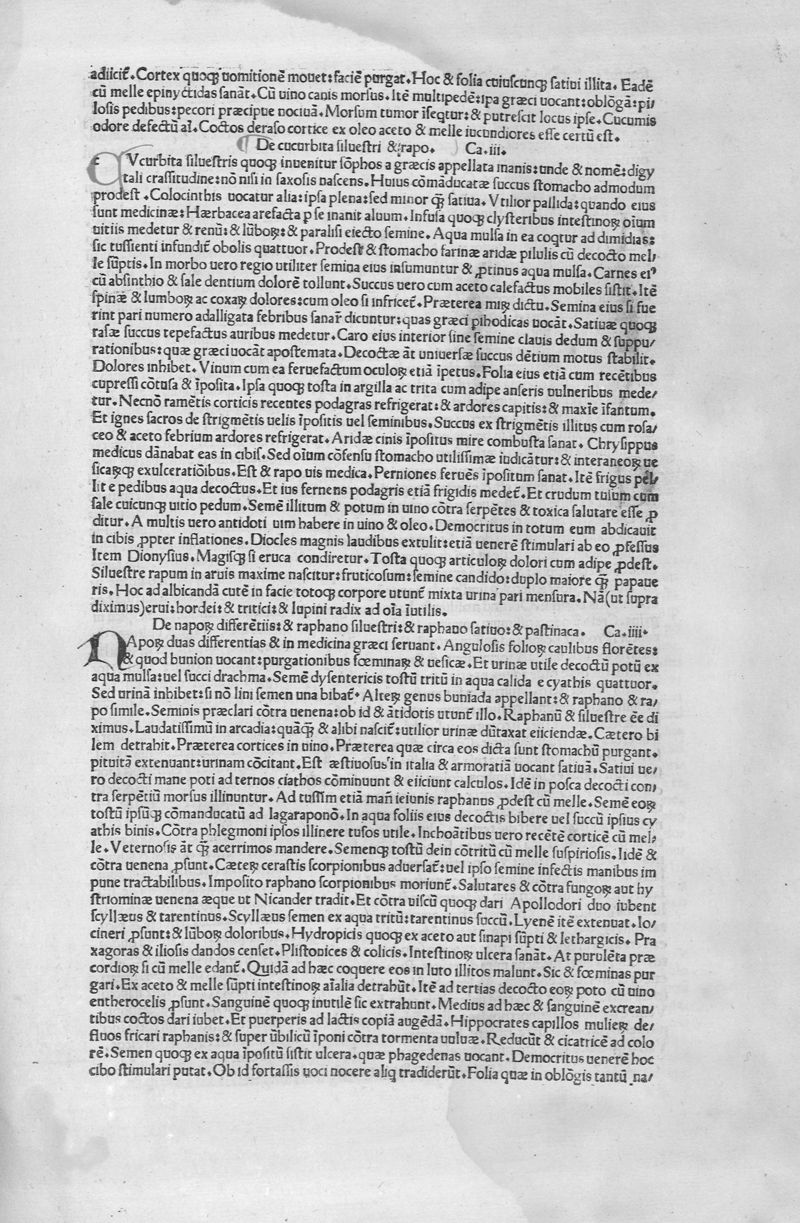 adiicit̄. Cortex quoqꝫ uomitionē mouet: faciē purgat. Hoc & folia cuiuscunqꝫ satiui illita. Eadē
cū melle epinyctidas sanāt. Cū uino canis morsus. Itē multipedē: ipa græci uocant: oblōgā: pi/
losis pedibus: pecori præcipue nociuā. Morsum tumor īseqtur: & putrescit locus ipse. Cucumis
odore defectū aī. Coctos deraso cortice ex oleo aceto & melle iucundiores esse certū est.
De cucurbita siluestri & rapo. Ca. iii.
CVcurbita siluestris quoqꝫ inuenitur sōphos a græcis appellata inanis: unde & nomē: digy
tali crassitudine: nō nisi in saxosis nascens. Huius cōmāducatæ succus stomacho admodum
prodest. Colocinthis uocatur alia: ipsa plena: sed minor qꝫ satiua. Vtilior pallida: quando eius
sunt medicinæ: Hærbacea arefacta p se inanit aluum. Infusa quoqꝫ clysteribus intestinoꝝ oīum
uitiis medetur & renū: & lūboꝝ: & paralisi eiecto semine. Aqua mulsa in ea coqtur ad dimidias:
sic tussienti infundit̄ obolis quattuor. Prodest & stomacho farinæ aridæ pilulis cū decocto mel/
le sūptis. In morbo uero regio utiliter semina eius insumuntur & ꝓtinus aqua mulsa. Carnes eiꝰ
cū absinthio & sale dentium dolorē tollunt. Succus uero cum aceto calefactus mobiles sistit. Itē
spinæ & lumboꝝ ac coxaꝝ dolores: cum oleo si infricet̄. Præterea miꝝ dictu. Semina eius si fue
rint pari numero adalligata febribus sanar̄ dicuntur: quas græci pihodicas uocāt. Satiuæ quoqꝫ
rasæ succus tepefactus auribus medetur. Caro eius interior sine semine clauis dedum & suppu/
rationibus: quæ græci uocāt apostemata. Decoctæ āt uniuersæ succus dētium motus stabilit.
Dolores inhibet. Vinum cum ea feruefactum oculoꝝ etiā īpetus. Folia eius etiā cum recētibus
cupressi cōtusa & īposita. Ipsa quoqꝫ tosta in argilla ac trita cum adipe anseris uulneribus mede/
tur. Necnō ramētis corticis recentes podagras refrigerat: & ardores capitis: & maxīe īfantum.
Et ignes sacros de strigmētis uelis īpositis uel seminibus. Succus ex strigmētis illitus cum rosa/
ceo & aceto febrium ardores refrigerat. Aridæ cinis īpositus mire combusta sanat. Chrysippus
medicus dānabat eas in cibis. Sed oīum cōsensu stomacho utilissimæ iudicātur: & interaneoꝝ ue
sicaꝝqꝫ exulceratiōibus. Est & rapo uis medica. Perniones feruēs īpositum sanat. Itē frigus pel/
lit e pedibus aqua decoctus. Et ius feruens podagris etiā frigidis medet̄. Et crudum tusum cum
sale cuicunqꝫ uitio pedum. Semē illitum & potum in uino cōtra serpētes & toxica salutare esse ꝓ
ditur. A multis uero antidoti uim habere in uino & oleo. Democritus in totum eum abdicauit
in cibis ꝓpter inflationes. Diocles magnis laudibus extulit: etiā uenerē stimulari ab eo ꝓfessus
Item Dionysius. Magisqꝫ si eruca condiretur. Tosta quoqꝫ articuloꝝ dolori cum adipe ꝓdest.
Siluestre rapum in aruis maxime nascitur: fruticosum: semine candido: duplo maiore qꝫ papaue
ris. Hoc ad albicandā cutē in facie totoqꝫ corpore utunt̄ mixta urina pari mensura. Nā(ut supra
diximus)erui: hordei: & tritici: & lupini radix ad oīa īutilis.
De napoꝝ differētiis: & raphano siluestri: & raphano satiuo: & pastinaca. Ca. iiii.
NApoꝝ duas differentias & in medicina græci seruant. Angulosis folioꝝ caulibus florētes:
& quod bunion uocant: purgationibus fœminaꝝ & uesicæ. Et urinæ utile decoctū potū ex
aqua mulsa: uel succi drachma. Semē dysentericis tostū tritū in aqua calida e cyathis quattuor.
Sed urinā inhibet: si nō lini semen una bibat̄. Alteꝝ genus buniada appellant: & raphano & ra/
po simile. Seminis præclari cōtra uenena: ob id & ātidotis utunt̄ illo. Raphanū & siluestre ēe di
ximus. Laudatissimū in arcadia: quāqꝫ & alibi nascit̄: utilior urinæ dūtaxat eiiciendæ. Cætero bi
lem detrahit. Præterea cortices in uino. Præterea quæ circa eos dicta sunt stomachū purgant.
pituitā extenuant: urinam cōcitant. Est æstiuosus in italia & armoratiā uocant satiuā. Satiui ue/
ro decocti mane poti ad ternos ciathos cōminuunt & eiiciunt calculos. Idē in posca decocti con/
tra serpētiū morsus illinuntur. Ad tussim etiā man̄ ieiunis raphanus ꝓdest cū melle. Semē eoꝝ
tostū ipsūqꝫ cōmanducatū ad lagaraponō. In aqua foliis eius decoctis bibere uel succū ipsius cy
athis binis. Cōtra phlegmoni ipsos illinere tusos utile. Inchoātibus uero recētē corticē cū mel/
le. Veternosis āt qꝫ acerrimos mandere. Semenqꝫ tostū dein cōtritū cū melle suspiriosis. Iidē &
cōtra uenena ꝓsunt. Cæteꝝ cerastis scorpionibus aduersat̄: uel ipso semine infectis manibus im
pune tractabilibus. Imposito raphano scorpionibus moriunt̄. Salutares & cōtra fungoꝝ aut hy
striominæ uenena æque ut Nicander tradit. Et cōtra uiscū quoqꝫ dari Apollodori duo iubent
scyllæus & tarentinus. Scyllæus semen ex aqua tritū: tarentinus succū. Lyenē itē extenuat. Io/
cineri ꝓsunt: & lūboꝝ doloribus. Hydropicis quoqꝫ ex aceto aut sinapi sūpti & lethargicis. Pra
xagoras & iliosis dandos censet. Plistonices & colicis. Intestinoꝝ ulcera sanāt. At purulēta præ
cordioꝝ si cū melle edant̄. Quidā ad hæc coquere eos in luto illitos malunt. Sic & fœminas pur
gari. Ex aceto & melle sūpti intestinoꝝ aīalia detrahūt. Itē ad tertias decocto eoꝝ poto cū uino
entherocelis ꝓsunt. Sanguinē quoqꝫ inutilē sic extrahunt. Medius ad hæc & sanguinē excrean/
tibus coctos dari iubet. Et puerperis ad lactis copiā augēdā. Hippocrates capillos mulieꝝ de/
fluos fricari raphanis: & super ūbilicū īponi cōtra tormenta uuluæ. Reducūt & cicatricē ad colo
rē. Semen quoqꝫ ex aqua īpositū sistit ulcera. quæ phagedenas uocant. Democritus uenerē hoc
cibo stimulari putat. Ob id fortassis uoci nocere aliq tradiderūt. Folia quæ in oblōgis tantū na/